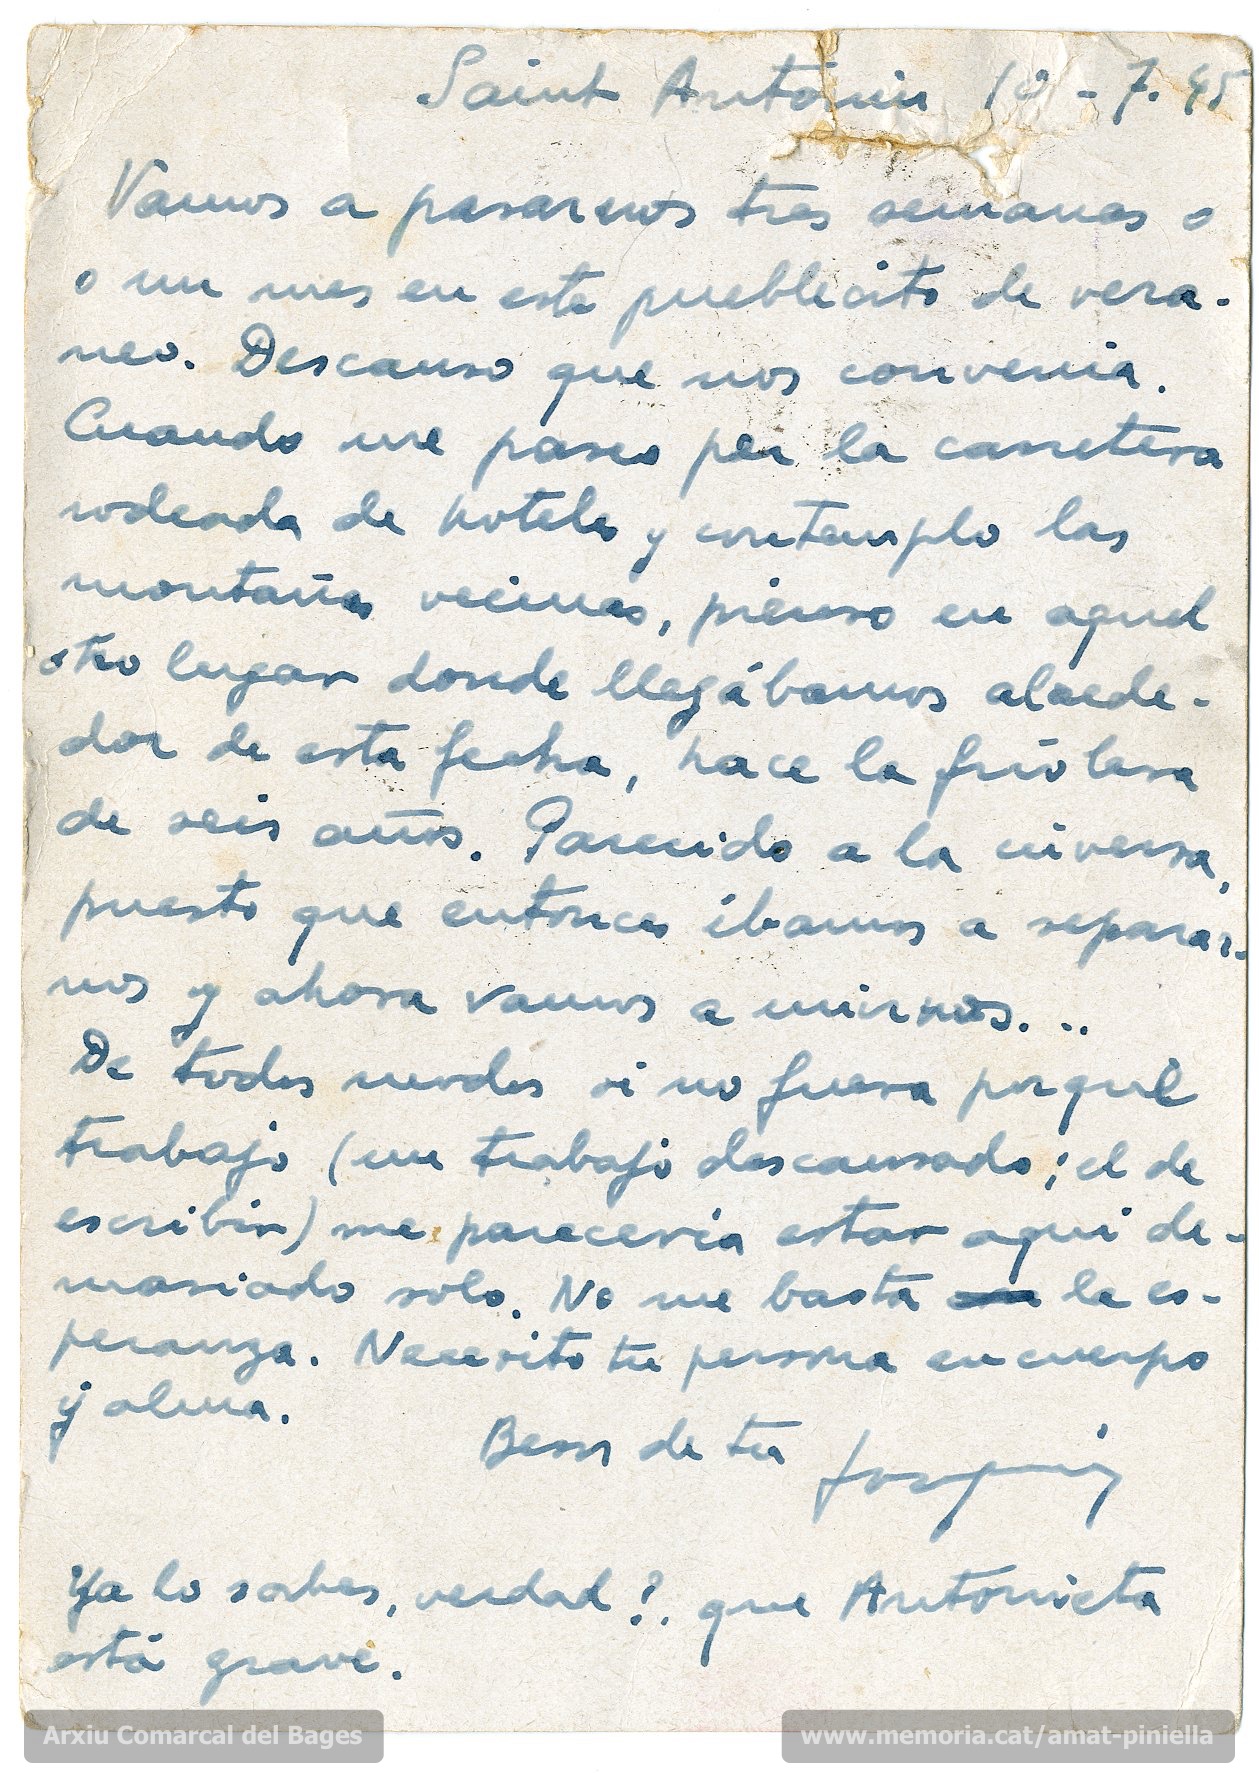 Saint Antonin 10-7.45
Vamos a pasarnos tres semanas o
o un mes en este pueblecito de vera-
neo. Descanso que nos convenia.
Cuando me paseo por la carretera
rodeada de hoteles y contemplo las
montañas vecinas, pienso en aquel
otro lugar donde llegábamos alrede-
dor de esta fecha, hace la friólera
de seis años. Parecido a la inversa,
puesto que entonces íbamos a separar-
nos y ahora vamos a unirnos...
De todos modos si no fuera porqué
trabajo (un trabajo descansado; el de
escribir) me parecería estar aqui de-
masiado solo. No me basta la es-
peranza. Necesito tu persona en cuerpo
y alma.
Besos de tu Joaquim
Ya lo sabes, verdad?. que Antonieta
está grave.
Arxiu Comarcal del Bages
www.memoria.cat/amat-piniella